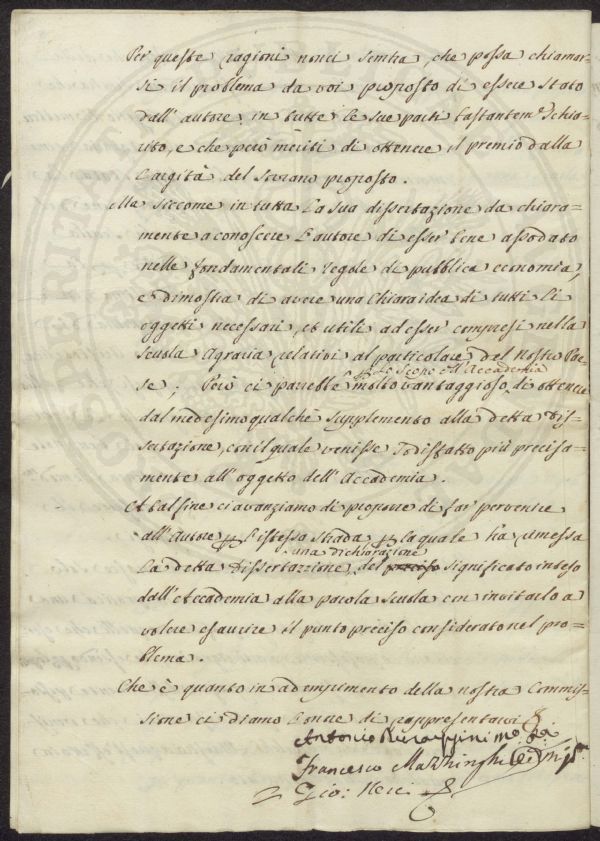 Per queste ragioni non ci sembra, che possa chiamar-
si il problema da voi proposto di essere stato
dall'autore in tutte le sue parti bastantem.e schia-
rito, e che però meriti di ottenere il premio dalla
Largità del Sovrano proposto.
Ma siccome in tutta la sua dissertazione da chiara-
mente a conoscere l'autore di esser bene assodato
nelle fondamentali regole di pubblica economia,
e dimostra di avere una chiara idea di tutti li
oggetti necessari, et utili ad esser compresi nella
Scuola Agraria relativi al particolare del nostro Pae-
lo scopo dell'Accademia
se; Però ci parrebbe molto vantaggioso di ottenere
dal medesimo qualche supplemento alla detta Dis-
sertazione, con il quale venisse sodisfatto più precisa-
mente all'oggetto dell'Accademia.
A tal fine ci avanziamo di proporre di far pervenire
all'Autore p l'istessa strada p la quale ha rimessa
una dichiarazione
la detta Dissertazzione, del preciso significato inteso
dall'Accademia alla parola Scuola con invitarlo a
volere esaurire il punto preciso considerato nel pro-
blema.
Che è quanto in adempimento della nostra Commis-
sione ci diamo l'onore di rappresentarvi
Antonio
Francesco Mazzinghi
Gio: Neri